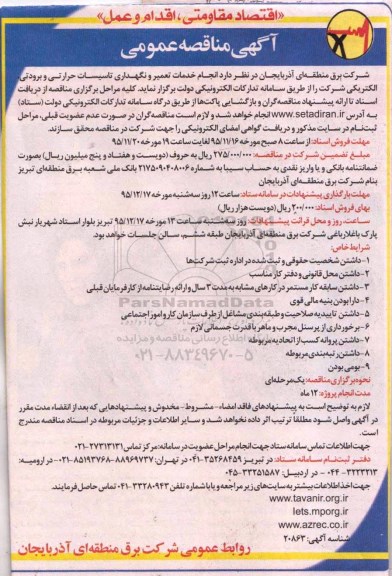 «اقتصاد مقاومتی، اقدام و عمل»
آگهی مناقصه عمومی
شرکت برق منطقه‌ای آذربایجان در نظر دارد انجام خدمات تعمیر و نگهداری تاسیسات حرارتی و برودتی
الکتریکی شرکت را از طریق سامانه تدارکات الکترونیکی دولت برگزار نماید. کلیه مراحل برگزاری مناقصه از دریافت
اسناد تا ارائه پیشنهاد مناقصه‌گران و بازگشایی پاکت‌ها از طریق درگاه سامانه تدارکات الکترونیکی دولت (ستاد)
به آدرس www.setadiran.ir انجام خواهد شد و لازم است مناقصه‌گران در صورت عدم عضویت قبلی، مراحل
ثبت‌نام در سایت مذکور و دریافت گواهی امضای الکترونیکی را جهت شرکت در مناقصه محقق سازند.
مهلت فروش اسناد: از ساعت ۸ صبح مورخه ۹۵/۱۱/۱۶ لغایت ساعت ۱۹ مورخه ۹۵/۱۱/۲۰
مبلغ تضمین شرکت در مناقصه: ۲۷۵/۰۰۰/۰۰۰ ریال به حروف (دویست و هفتاد و پنج میلیون ریال) بصورت
ضمانتنامه بانکی و یا واریز نقدی به حساب سیبا به شماره ۲۱۷۵۰۹۰۴۰۸۰۰۶ بانک ملی شعبه برق منطقه‌ای تبریز
بنام شرکت برق منطقه‌ای آذربایجان
مهلت بارگذاری پیشنهادات در سامانه ستاد: ساعت ۱۲ روز سه‌شنبه مورخه ۹۵/۱۲/۱۷
بهای فروش اسناد: ۲۰۰/۰۰۰ ریال (دویست هزار ریال)
ساعت، روز و محل قرائت پیشنهادات: روز سه‌شنبه ساعت ۱۳ مورخه ۹۵/۱۲/۱۷ تبریز بلوار استاد شهریار نبش
پارک باغلارباغی شرکت برق منطقه‌ای آذربایجان طبقه ششم، سالن جلسات خواهد بود.
شرایط خاص:
۱- داشتن شخصیت حقوقی و ثبت شده در اداره ثبت شرکت‌ها
۲- داشتن محل قانونی و دفتر کار مناسب
۳- داشتن سابقه کار مستمر در کارهای مشابه به مدت ۳ سال و ارائه رضایتنامه از کارفرمایان قبلی
۴- دارا بودن بنیه مالی قوی
۵- داشتن تاییدیه صلاحیت و طبقه‌بندی مشاغل از طرف سازمان کار و امور اجتماعی
۶- برخورداری از پرسنل مجرب و ماهر با قدرت جسمانی لازم
۷- داشتن پروانه کسب از اتحادیه مربوطه
۸- داشتن رتبه‌بندی مربوطه
۹- بومی بودن
نحوه برگزاری مناقصه: یک مرحله‌ای
مدت انجام پروژه: ۱۲ ماه
لازم به توضیح است به پیشنهادهای فاقد امضاء- مشروط- مخدوش و پیشنهادهایی که بعد از انقضاء مدت مقرر
در آگهی واصل شود مطلقا ترتیب اثر داده نخواهد شد و سایر اطلاعات و جزئیات مربوطه در اسناد مناقصه مندرج
است.
جهت اطلاعات تماس سامانه ستاد جهت انجام مراحل عضویت در سامانه: مرکز تماس ۲۷۳۱۳۱۳۱-۰۲۱
دفتر ثبت‌نام سامانه ستاد: در تبریز ۳۵۲۶۸۴۵۹-۰۴۱ در تهران: ۸۸۹۶۹۷۳۷-۸۵۱۹۳۷۶۸-۰۲۱- در ارومیه:
۳۲۲۲۳۱۳-۰۴۴ - در اردبیل: ۳۳۲۵۱۵۸۷-۰۴۵
جهت اخذ اطلاعات بیشتر به سایت‌های زیر مراجعه و یا با شماره تلفن ۳۳۲۸۰۹۴۳-۰۴۱ تماس حاصل فرمایند.
www.tavanir.org.ir
iets.mporg.ir
www.azrec.co.ir
شناسه آگهی: ۲۰۸۶۳
روابط عمومی شرکت برق منطقه‌ای آذربایجان
ParsNamadData
۰۲۱-۸۸۳۴۹۶۷۰-۵